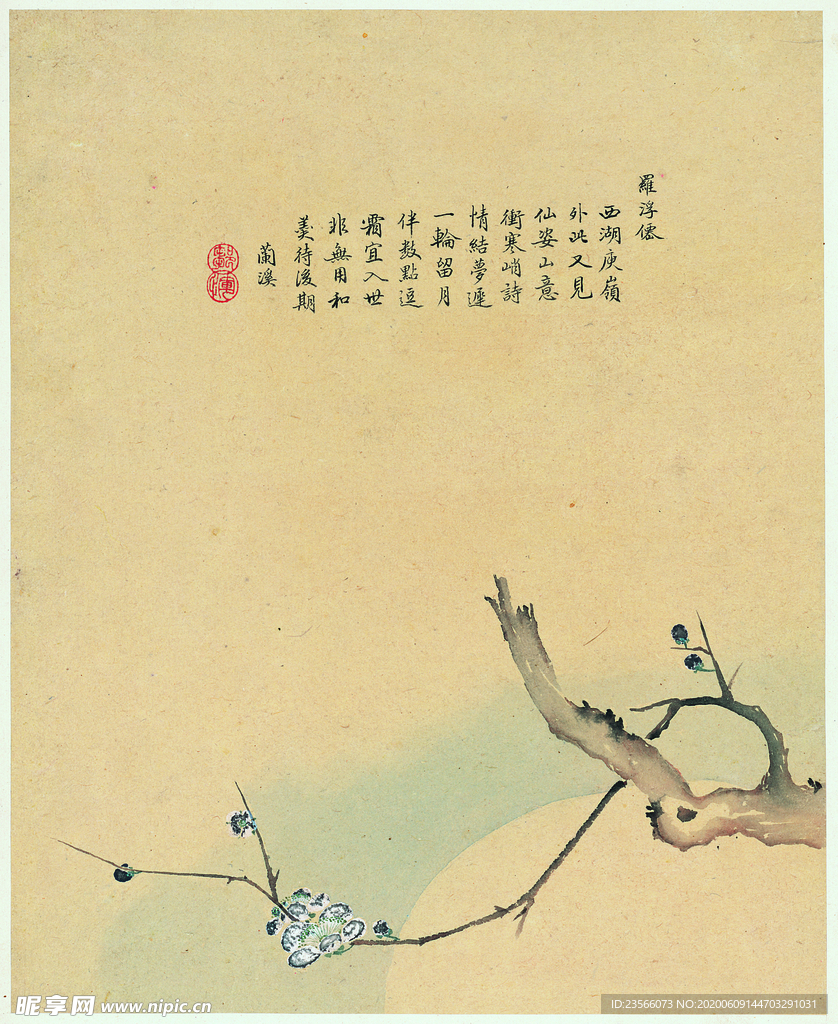 羅浮僊
西湖庾嶺
外此又見
仙姿山意
衝寒峭詩
情結夢遲
一輪留月
伴數點逗
霜宜入世
非無用和
羹待後期
蘭溪
昵享网 www.nipic.cn
ID:23566073 NO:20200609144703291031